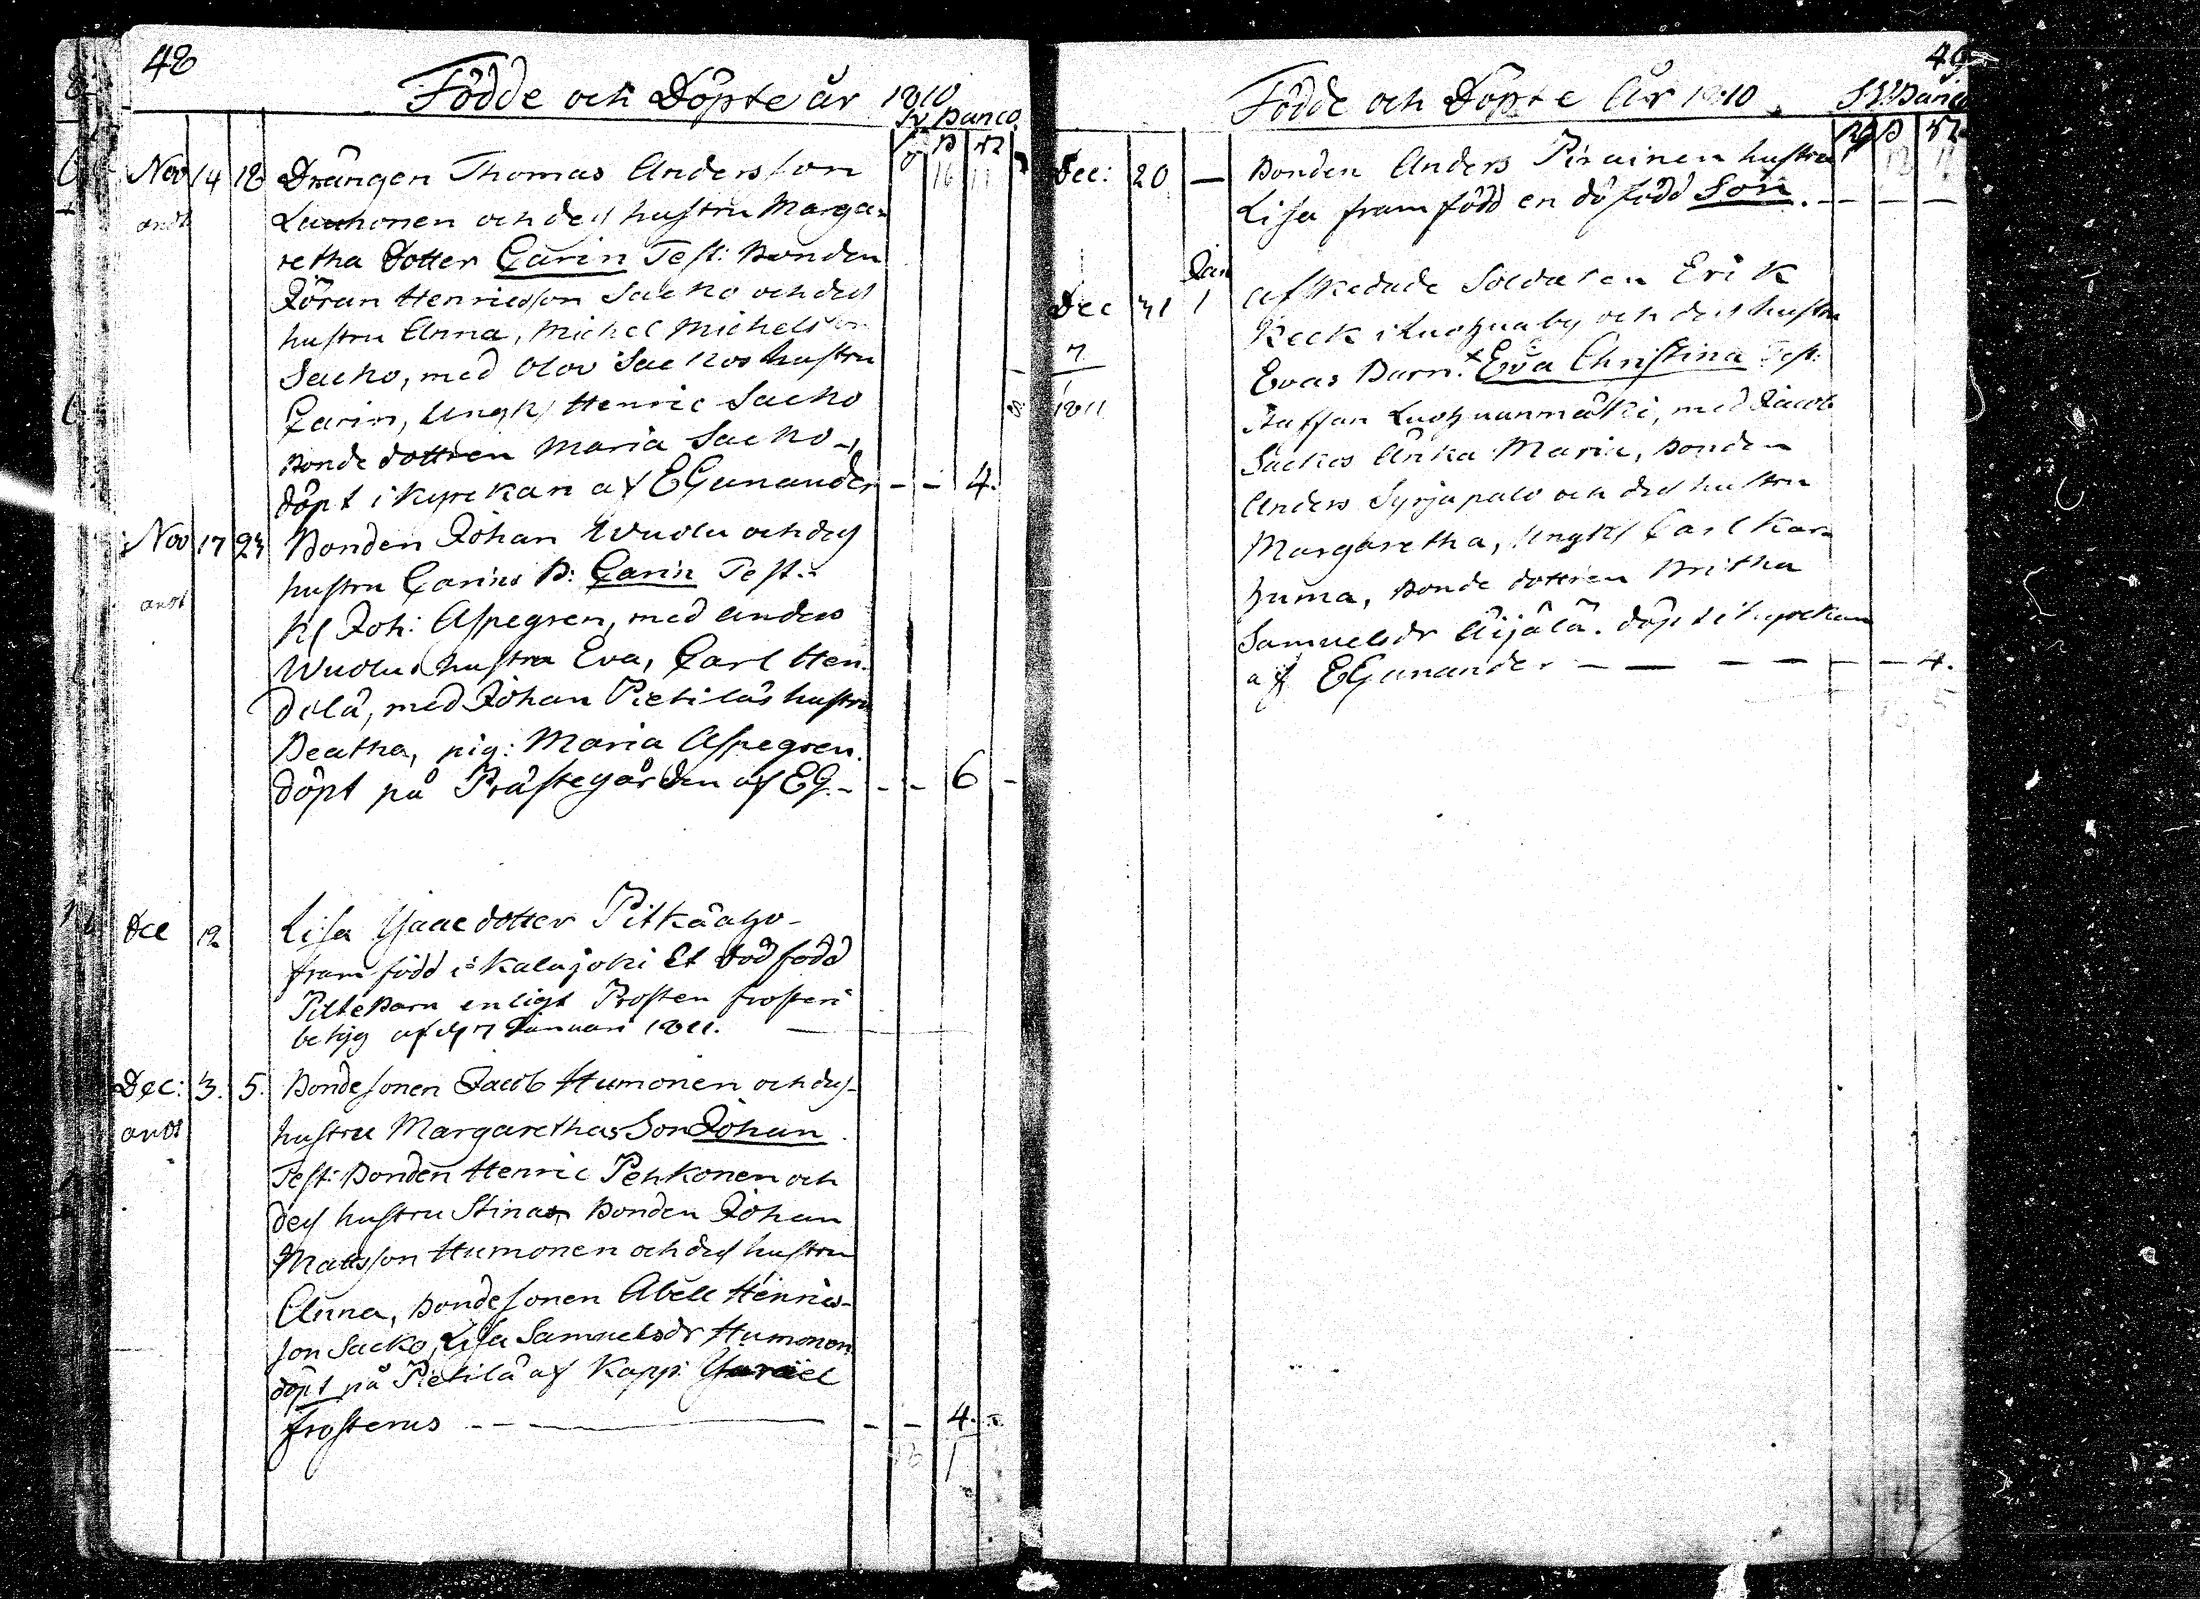 48
Födde och Döpte år 1810
Banco
Nov 14 18 Drängen Thomas Andersson
andt
Lauhonen och dess hustru Marga-
retha dotter Carin Test: Bonden
Jöran Henricsson Sacko och dess
hustru Anna, Michel Michelsson
Sacko, med Olov Sackos hustru
Carin, Ungk. Henric Sacko
Bonde dottren Maria Sacko -
döpt i kyrckan af EGummander - - 4.
Nov 17 23 Bonden Johan Wuolu och dess
hustru Carins B: Carin Test:
andt
Kl Joh: Aspegren, med Anders
Wuolus hustru Eva, Carl Hen-
dolä, med Johan Pietiläs hustru
Beatha, pig: Maria Aspegren
döpt på Prästegården af EG. - - - 6 -
Dec 12 Lisa Isaacdotter Pitkäaho -
framfödd i Kalajoki Et dödfödd
Pilte Barn enligt Prosten Frosteri
betyg af d 7 Januari 1811.
Dec: 3. 5. Bondesonen Jacob Humonen och dess
andt
hustru Margarethas Son Johan
Test: Bonden Henric Pehkonen och
dess hustru Stina, Bonden Johan
Mattsson Humonen och dess hustru
Anna, Bondesonen Abell Henrics-
son Sacko, Lisa Samuelsdr Humonen
döpt på Pietilä af Kapp: Israël
Frosterus - - - - - 4.
49
Födde och Döpte År 1810. Banco
Dec: 20 — Bonden Anders Piirainen hustru
Lisa framfödd en dödfödd Son. - - -
Jan
Dec 31 1 afskedade Soldaten Erik
Keck i Luohuaby och dess hustru
7
Evas Barn: Eva Christina Test:
1811
Staffan Luohuanmäki, med Jacob
Sackos Änka Maria, Bonden
Anders Syrjäpalo och dess hustru
Margaretha, Ungk. Carl Kar-
huma, Bonde dottren Britha
Samuelsdr Äijälä. döpt i kyrckan
af EGummander - - - - - - 4.